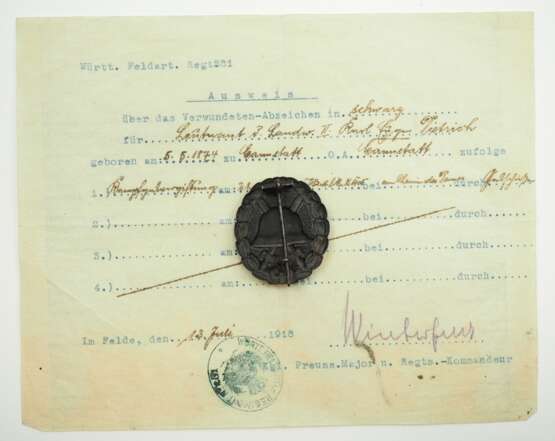 Württ. Feldart. Regt281
Ausweis
über das Verwundeten-Abzeichen in schwarz
für Leutnant d. Landw. II Karl Dietrich
geboren am 5.5.1874 zu Cannstatt O.A. Cannstatt zufolge
1. Kampfgasvergiftung am bei durch
2.) am: bei durch
3.) am: bei durch
4.) am: bei durch
Im Felde, den 13. Juli 1918
Kgl. Preuss. Major u. Regts.-Kommandeur